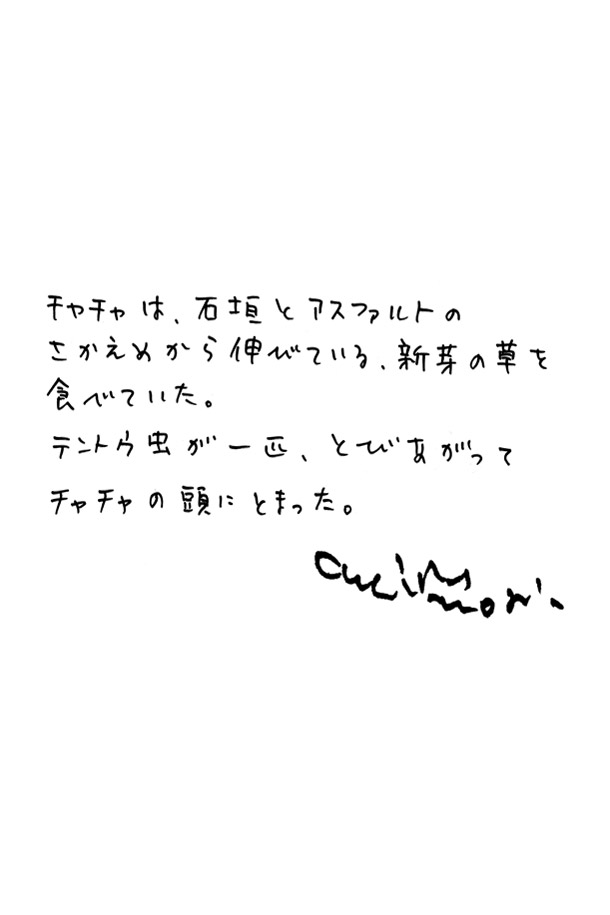 チャチャは、石垣とアスファルトの
さかえめから伸びている、新芽の草を
食べていた。
テントウ虫が一匹、とびあがって
チャチャの頭にとまった。